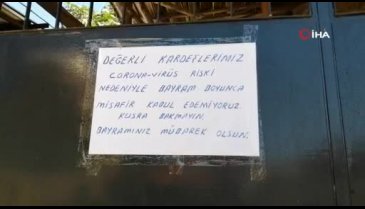 İHA
DEĞERLİ KARDEŞLERİMİZ
CORONA-VİRÜS RİSKİ
NEDENİYLE BAYRAM BOYUNCA
MİSAFİR KABUL EDEMİYORUZ.
KUSRA BAKMAYIN.
BAYRAMINIZ MÜBAREK OLSUN.